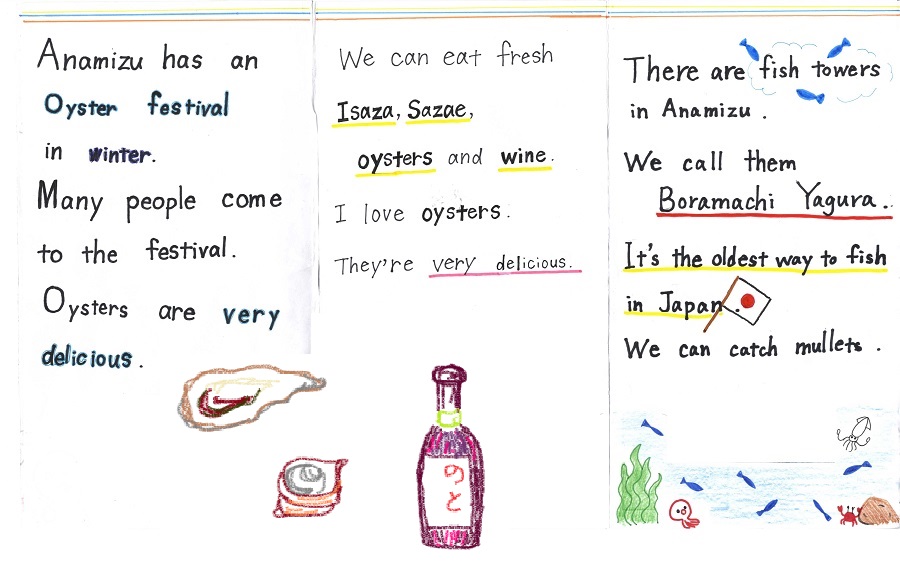 Anamizu has an
Oyster festival
in winter.
Many people come
to the festival.
Oysters are very
delicious.
We can eat fresh
Isaza, Sazae,
oysters and wine.
I love oysters.
They're very delicious.
のと
There are fish towers
in Anamizu.
We call them
Boramachi Yagura.
It's the oldest way to fish
in Japan.
We can catch mullets.